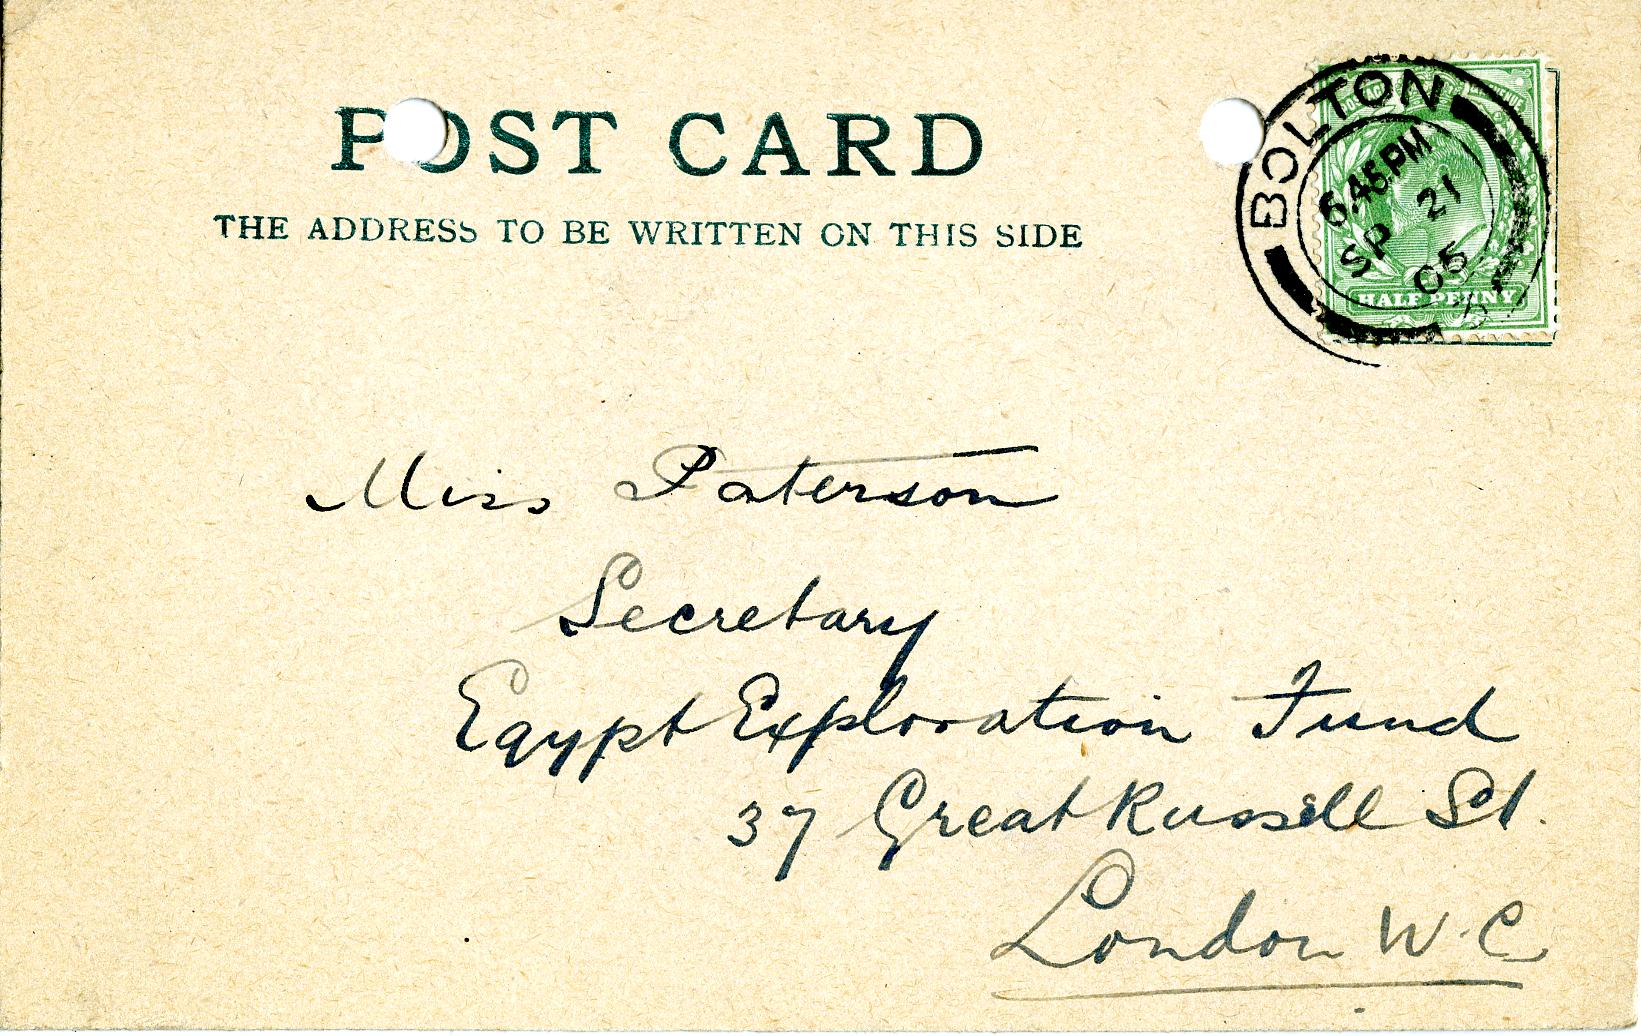 POST CARD
THE ADDRESS TO BE WRITTEN ON THIS SIDE
BOLTON
6.45PM
SP 21
05
HALF PENNY
Miss Paterson
Secretary
Egypt Exploration Fund
37 Great Russell St.
London W.C